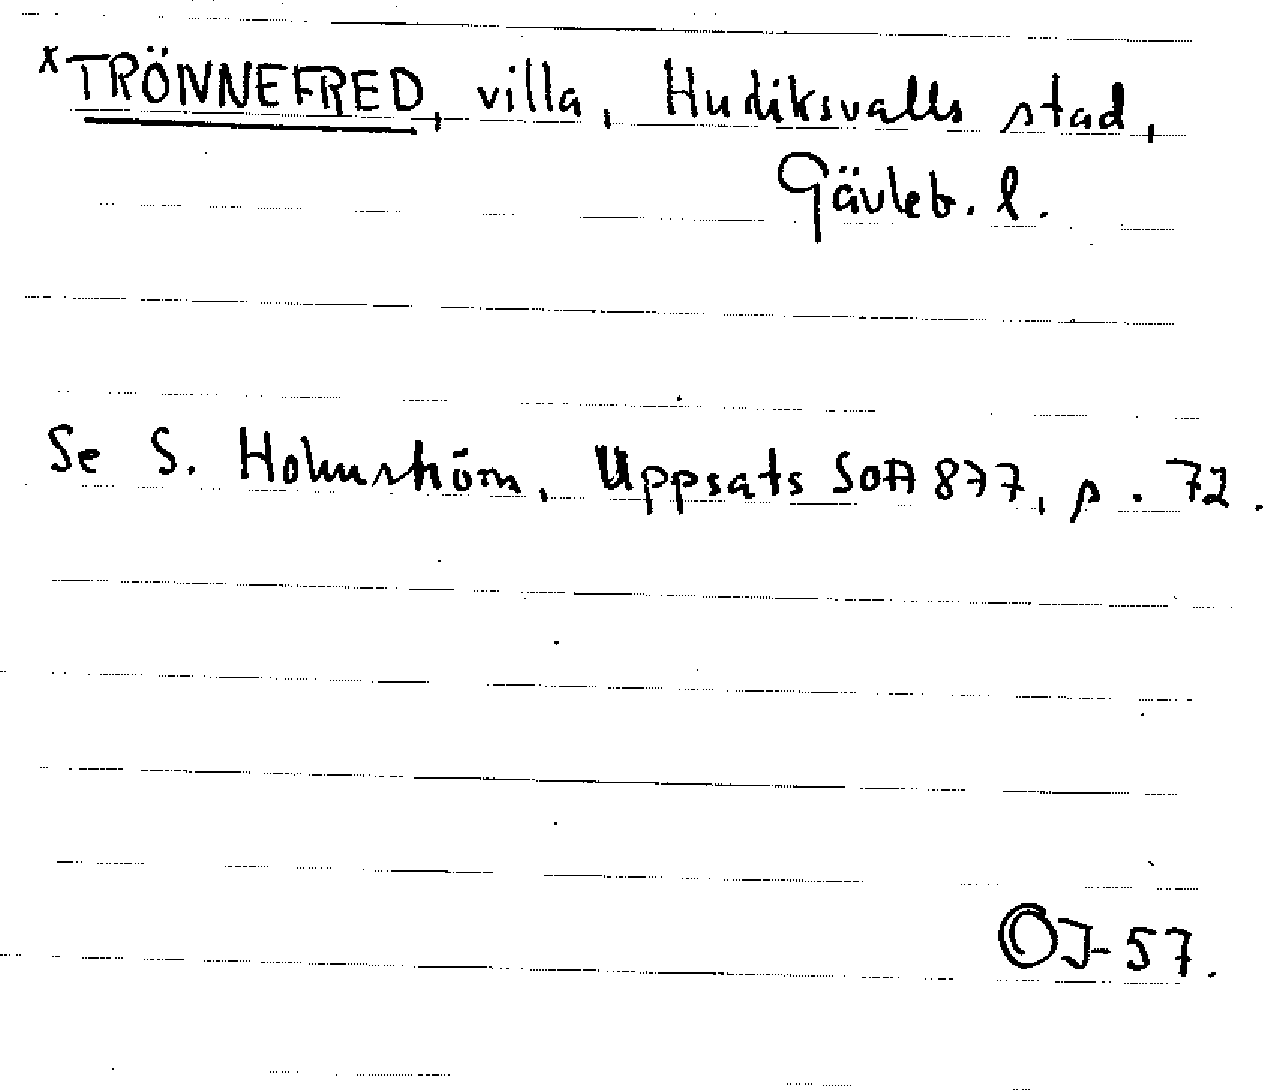 x TRÖNNEFRED, villa, Hudiksvalls stad,
Gävleb. l.
Se S. Holmström, Uppsats SOA 877, s. 72.
OJ-57.